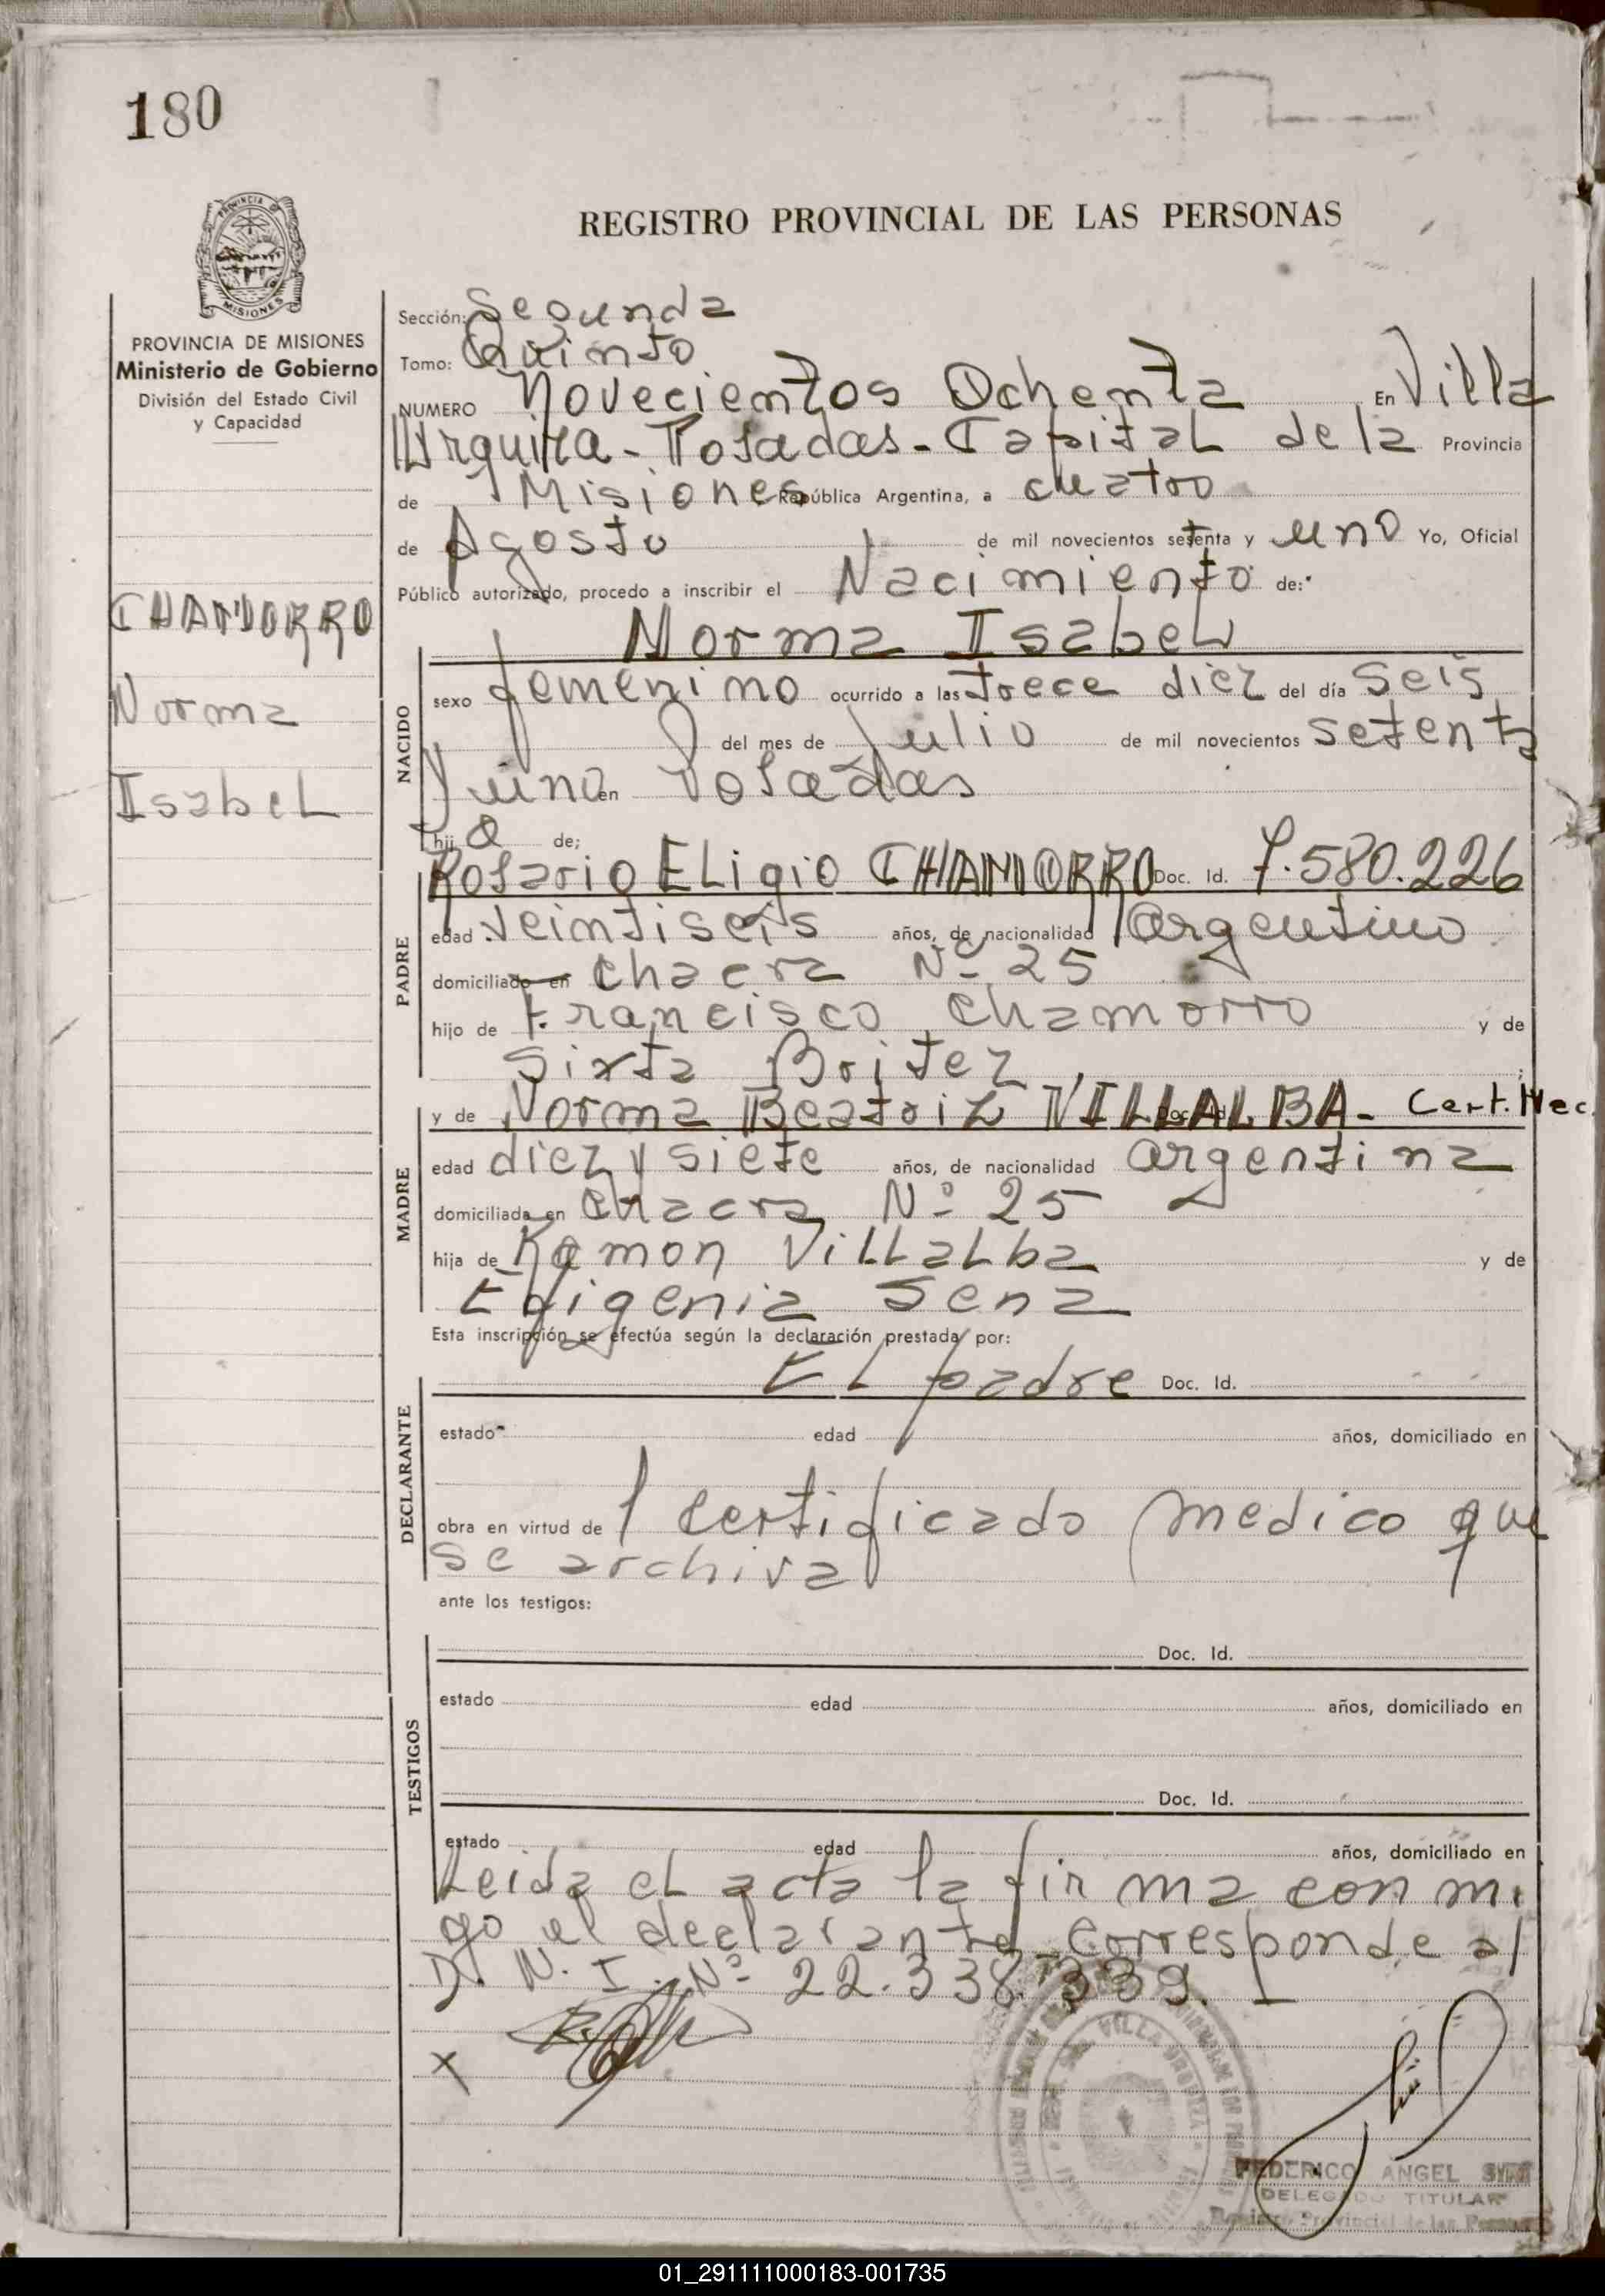 180
REGISTRO PROVINCIAL DE LAS PERSONAS
PROVINCIA DE MISIONES
Ministerio de Gobierno
División del Estado Civil
y Capacidad
CHAMORRO
Norma
Isabel
Sección: Segunda
Tomo: Quinto
NUMERO Novecientos Ochenta En Villa
Urquiza - Posadas - Capital de la Provincia
de Misiones República Argentina, a cuatro
de Agosto de mil novecientos setenta y uno Yo, Oficial
Público autorizado, procedo a inscribir el Nacimiento de:
Norma Isabel
NACIDO
sexo femenino ocurrido a las trece diez del día seis
del mes de Julio de mil novecientos setenta
y uno en Posadas
hij a de;
PADRE
Rosario Eligio CHAMORRO Doc. Id. 7.580.226
edad veintiseis años, de nacionalidad argentino
domiciliado en chacra Nº 25
hijo de Francisco Chamorro y de
Sixta Britez ;
MADRE
y de Norma Beatriz VILLALBA - Cert. Nec.
edad diez y siete años, de nacionalidad argentina
domiciliada en chacra Nº 25
hija de Ramon Villalba y de
Efigenia Sena
Esta inscripción se efectúa según la declaración prestada por:
DECLARANTE
El padre Doc. Id.
estado edad años, domiciliado en
obra en virtud de 1 certificado medico que
se archiva
ante los testigos:
TESTIGOS
Doc. Id.
estado edad años, domiciliado en
Doc. Id.
estado edad años, domiciliado en
Leida el acta la firma conmi
go el declarante corresponde al
D. N. I. Nº 22.338.339.
X
VILLA URQUIZA
FEDERICO ANGEL
DELEGADO TITULAR
Registro Provincial de las Personas
01_291111000183-001735